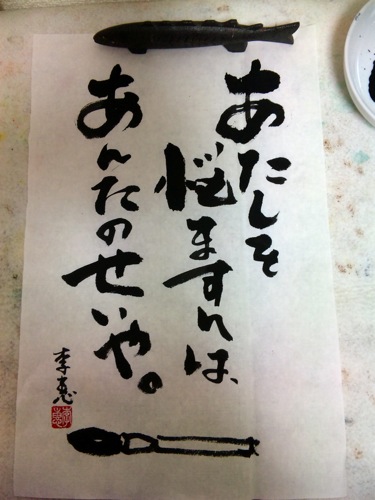 あたしを
悩ますんは、
あんたのせいや。
李恵